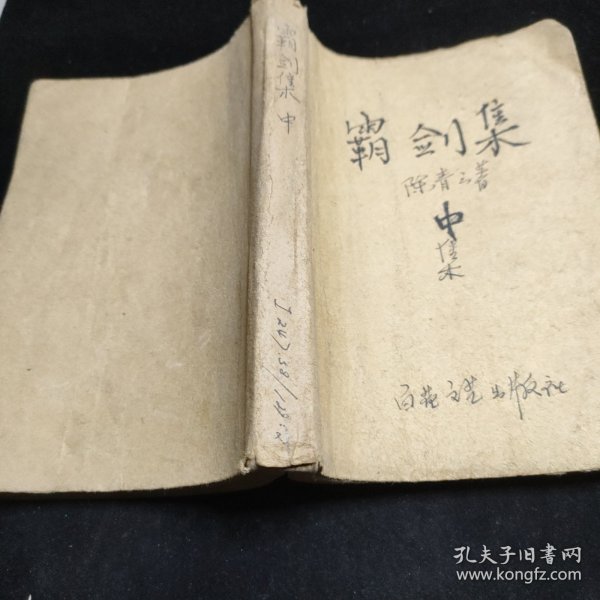 霸剑集 中
I247.58/
霸剑集
陈青云著
中
集
百花文艺出版社
孔夫子旧书网
www.kongfz.com